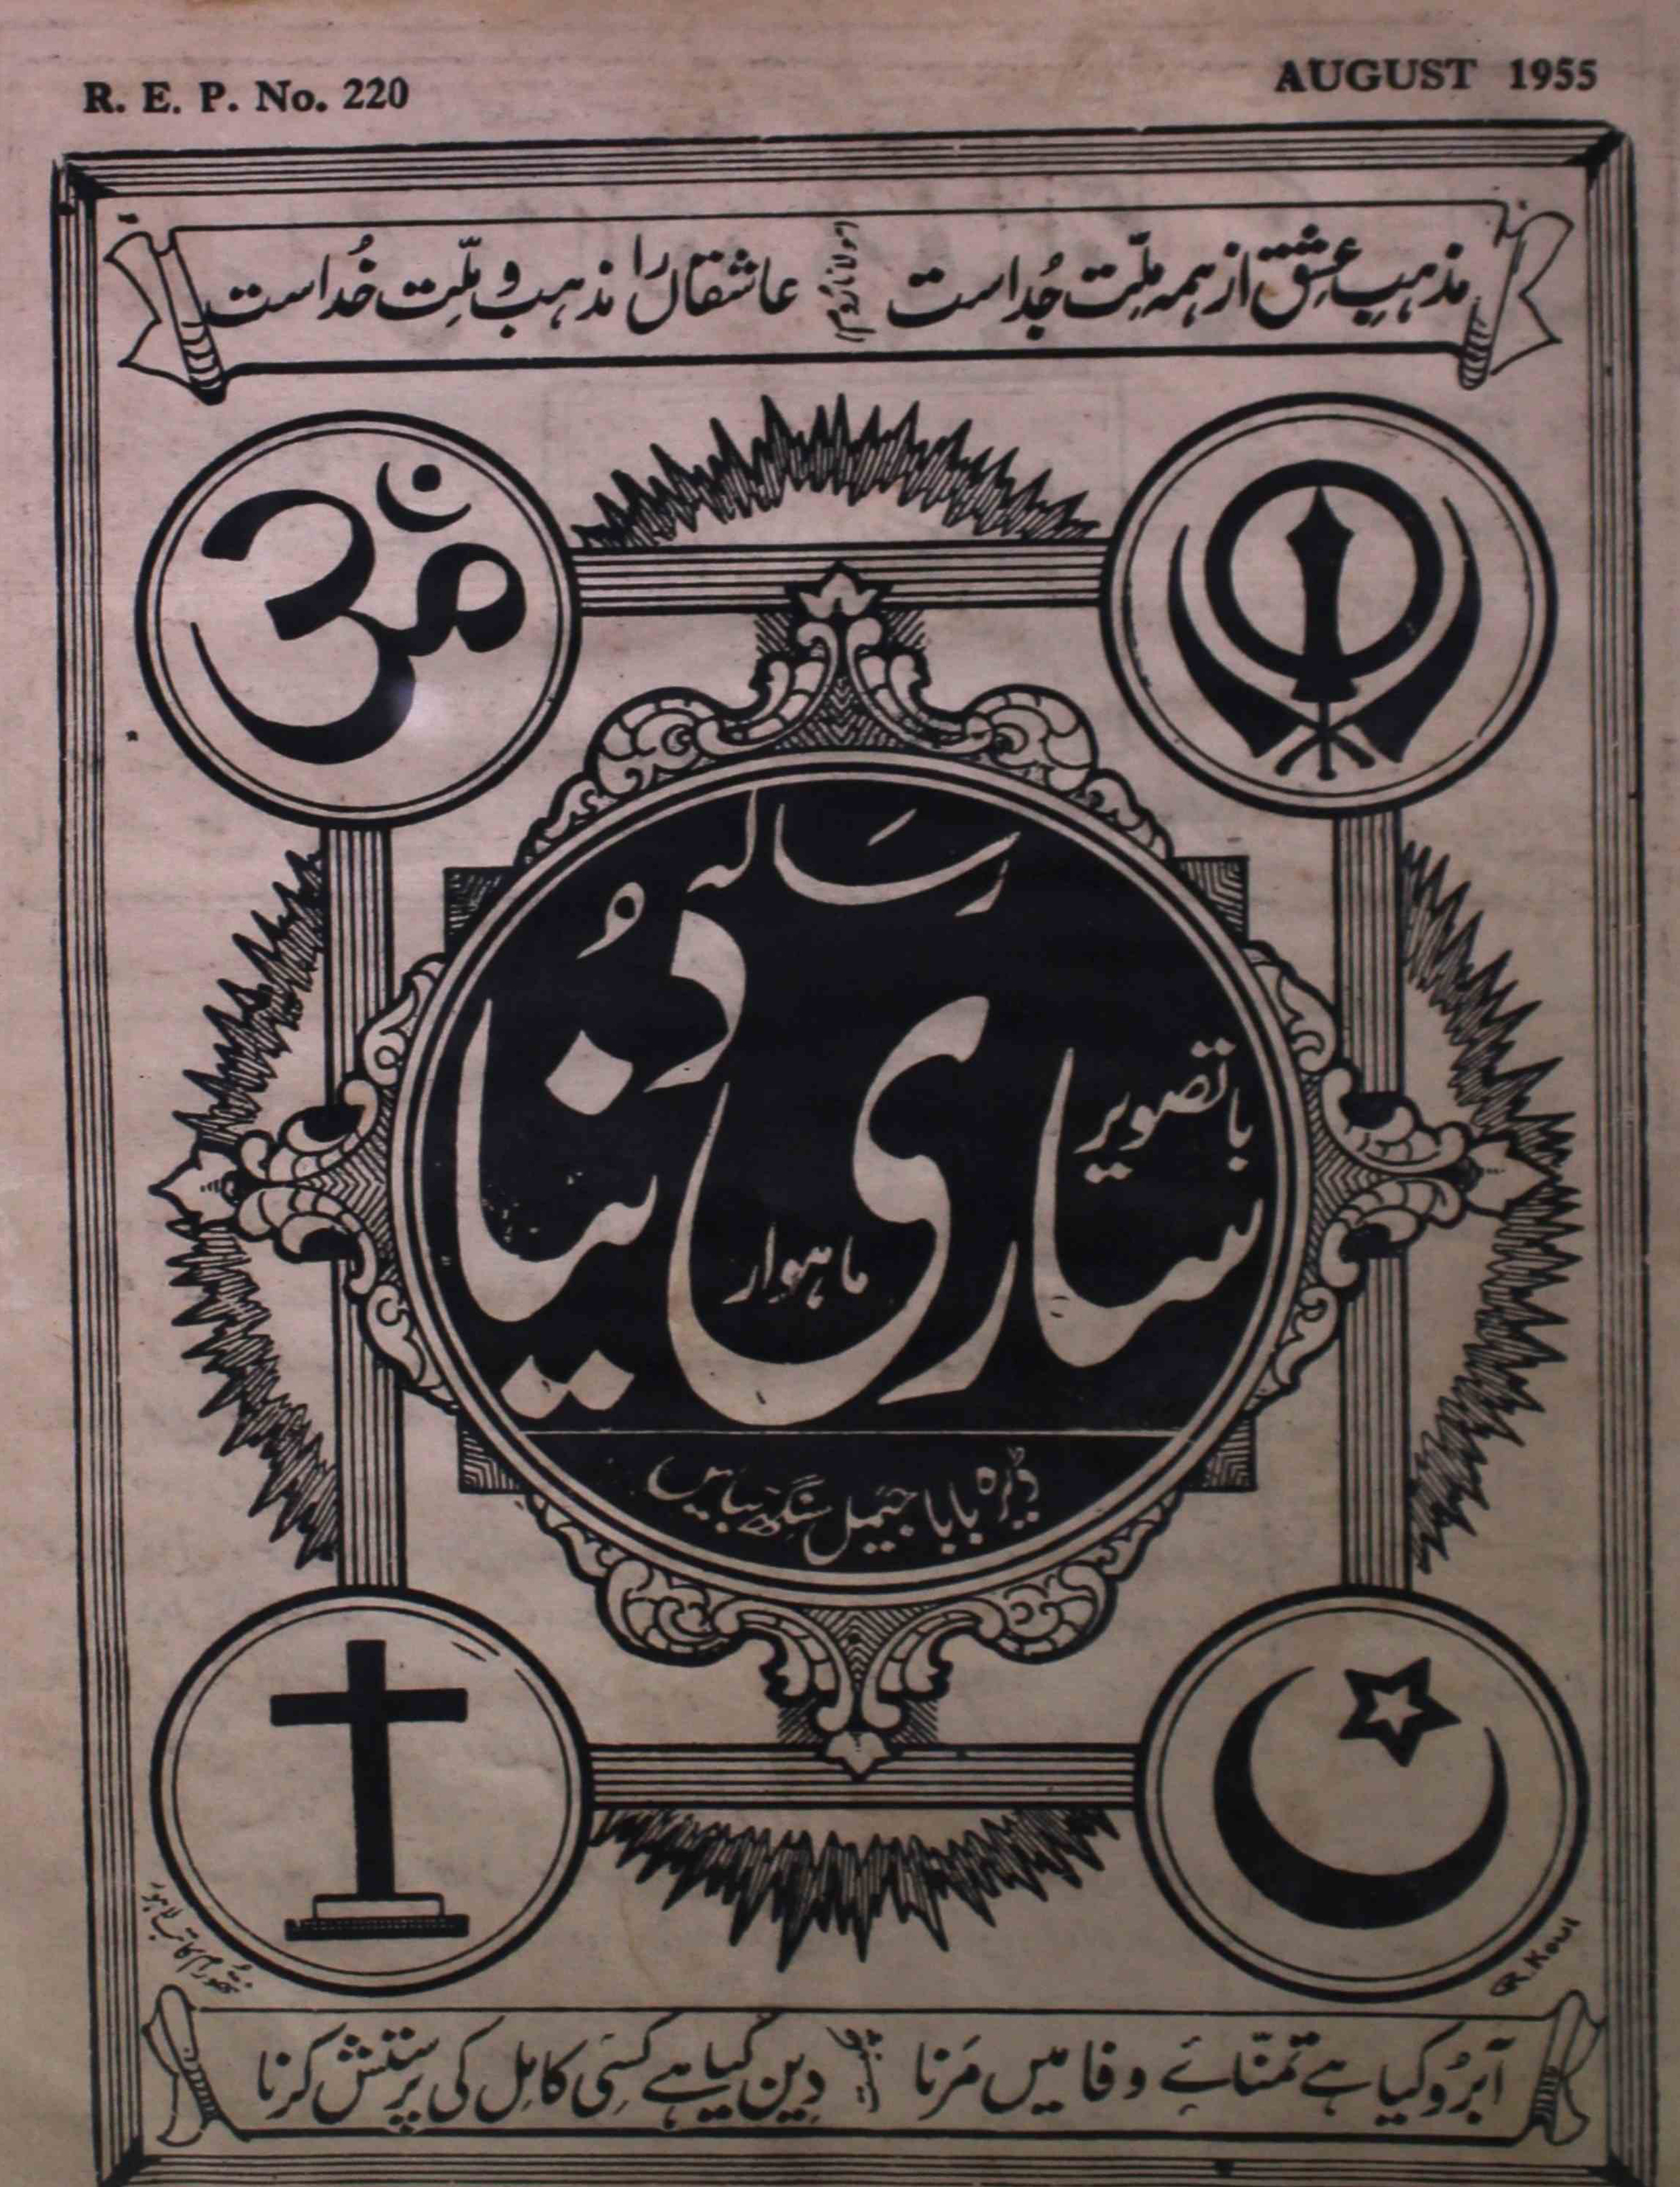 R. E. P. No. 220
AUGUST 1955
مذہبِ عشق از ہمہ ملّت جُداست مولانا روم عاشقاں را مذہب و ملّت خُداست
رسَالہ
باتصویر
ساری دُنیا
ماہوار
ڈیرہ بابا جیمل سنگھ بیاس
R. Koul
آبرُو کیا ہے تمنّائے وفا میں مَرنا دِین کیا ہے کسِی کامِل کی پرستش کرنا